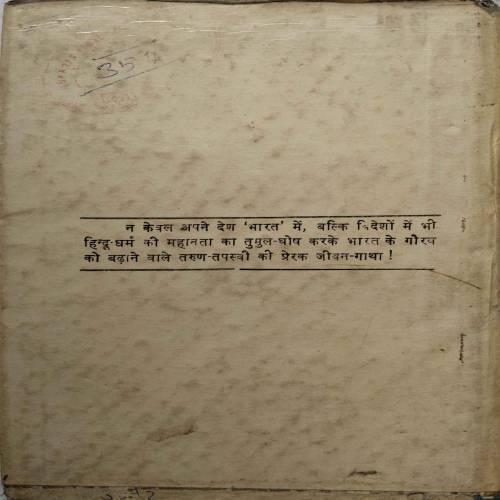 35
न केवल अपने देश 'भारत' में, बल्कि विदेशों में भी
हिन्दू-धर्म की महानता का तुमुल-घोष करके भारत के गौरव
को बढ़ाने वाले तरुण-तपस्वी की प्रेरक जीवन-गाथा !